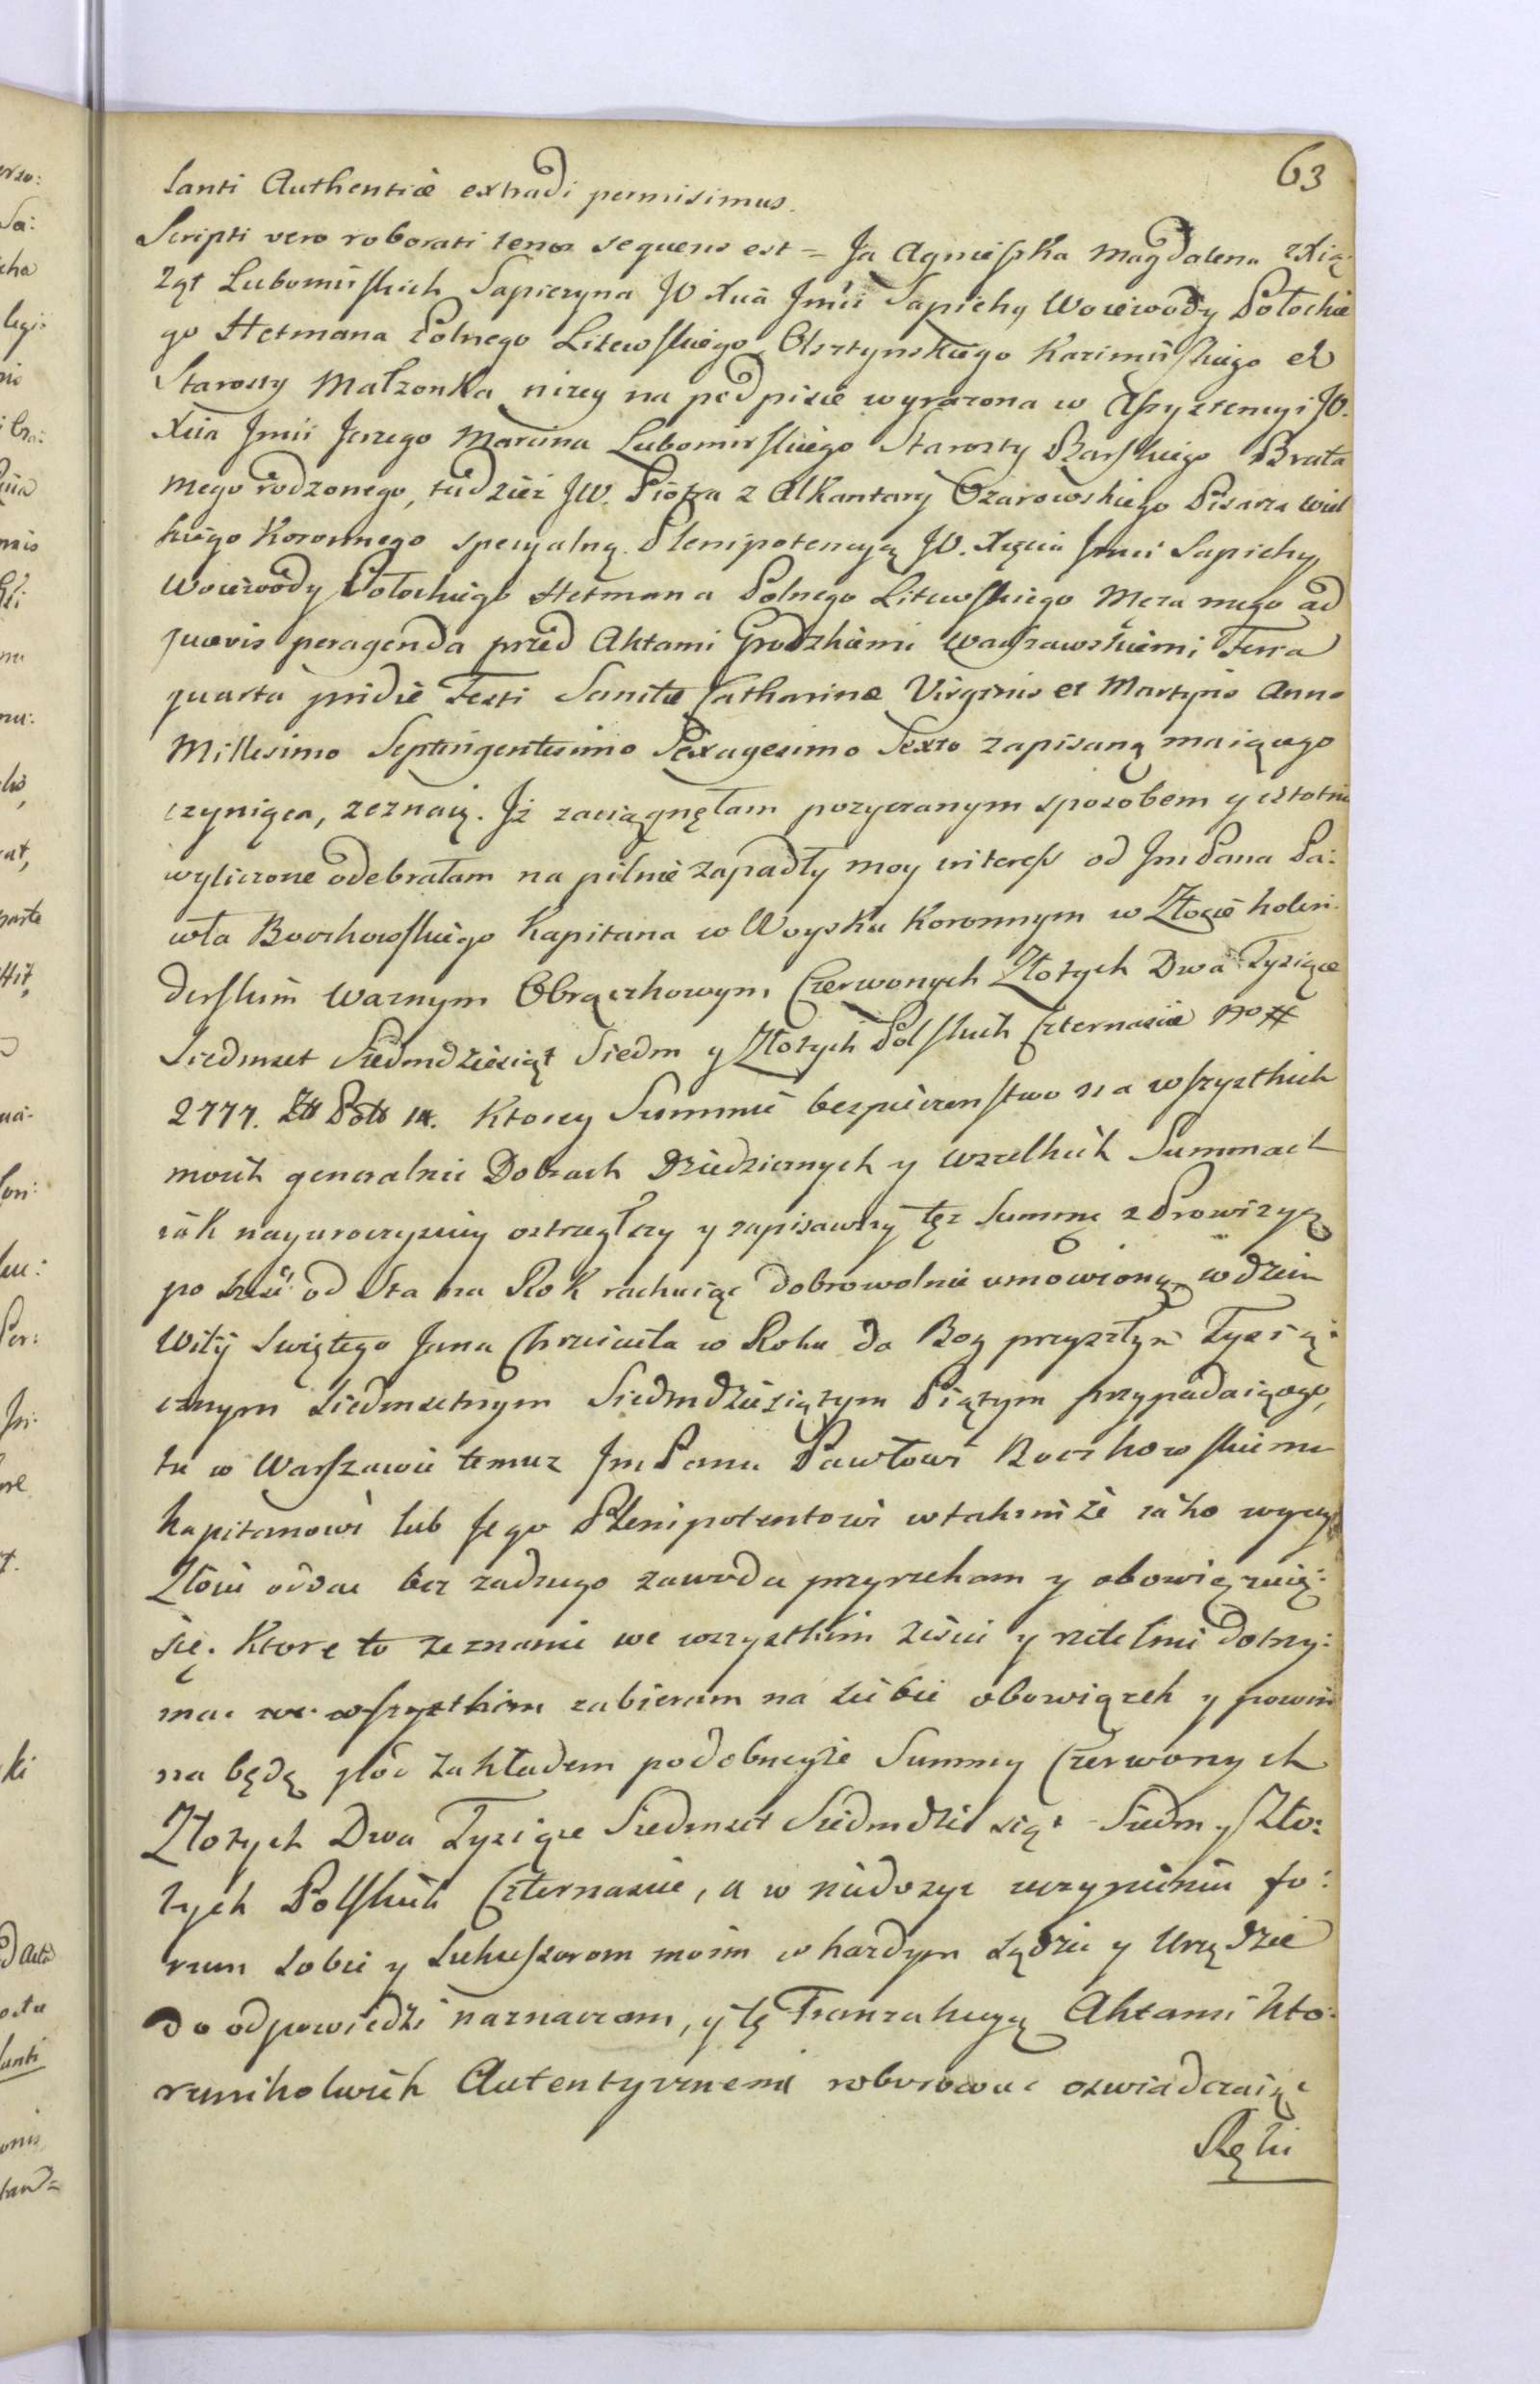 63
lanti Authenticè extradi permisimus.
Scripti vero roborati tenor sequens est = Ja Agnieszka Magdalena z Xią:
żąt Lubomirskich Sapieżyna JW Xcia Jmci Sapiehy Woiewody Połockie
go Hetmana Polnego Litewskiego Olsztynskiego Kazimirskiego et
Starosty Małżonka niżey na podpisie wyrażona w Assystencyi JW.
Xcia Jmci Jerzego Marcina Lubomirskiego Starosty Barskiego Brata
mego rodzonego, tudzież JW. Piotra z Alkantary Ożarowskiego Pisarza Wiel
kiego Koronnego specyalną Plenipotencyą JW. Xięcia Jmci Sapiehy
Woiewody Połockiego Hetmana Polnego Litewskiego Męża mego ad
quævis peragenda przed Aktami Grodzkiemi Warszawskiemi Feria
quarta pridie Festi Sanctæ Catharinæ Virginis et Martyris Anno
Millesimo Septingentesimo Sexagesimo Sexto zapisaną maiącego
czyniąca, zeznaię. Jż zaciągnęłam pożyczanym sposobem y istotnie
wyliczone odebrałam na pilnie zapadły moy interess od Jm Pana Pa:
wła Boczkowskiego Kapitana w Woysku Koronnym w Złocie holen:
derskim ważnym Obrączkowym Czerwonych Złotych Dwa Tysiące
Siedmset Siedmdziesiąt Siedm y Złotych Polskich Czternaście
2777. Zł Pols 14. Ktorey Summie bezpieczenstwo na wszystkich
moich generalnie Dobrach Dziedzicznych y wszelkich Summach
iak nayuroczysciey ostrzegłszy y zapisawszy tęż Summę z Prowizyą
po szesć od Sta na Rok rachuiąc dobrowolnie umowioną, w dzien
Wilij Swiętego Jana Chrzciciela w Roku da Bog przyszłym Tysią:
cznym Siedmsetnym Siedmdziesiątym Piątym przypadaiącego,
tu w Warszawie temuż Jm Panu Pawłowi Boczkowskiemu
Kapitanowi lub Jego Plenipotentowi w takimże iako wyżey
Złocie oddać bez żadnego zawodu przyrzekam y obowięzuię
się. Ktore to zeznanie we wszystkim ziscic y rzetelnie dotrzy:
mac we wszystkim zabieram na siebie obowiązek y powin
na będę pod zakładem podobneyże Summy Czerwonych
Złotych Dwa Tysiące Siedmset Siedmdziesiąt Siedm y Zło:
tych Polskich Czternascie, a w niedosyc uczynieniu fo:
rum sobie y Sukcessorom moim w każdym Sądzie y Urzędzie
do odpowiedzi naznaczam, y tę Tranzakcyą Aktami kto:
remikolwiek Autentycznemi roborowac oswiadczaiąc
Ręki